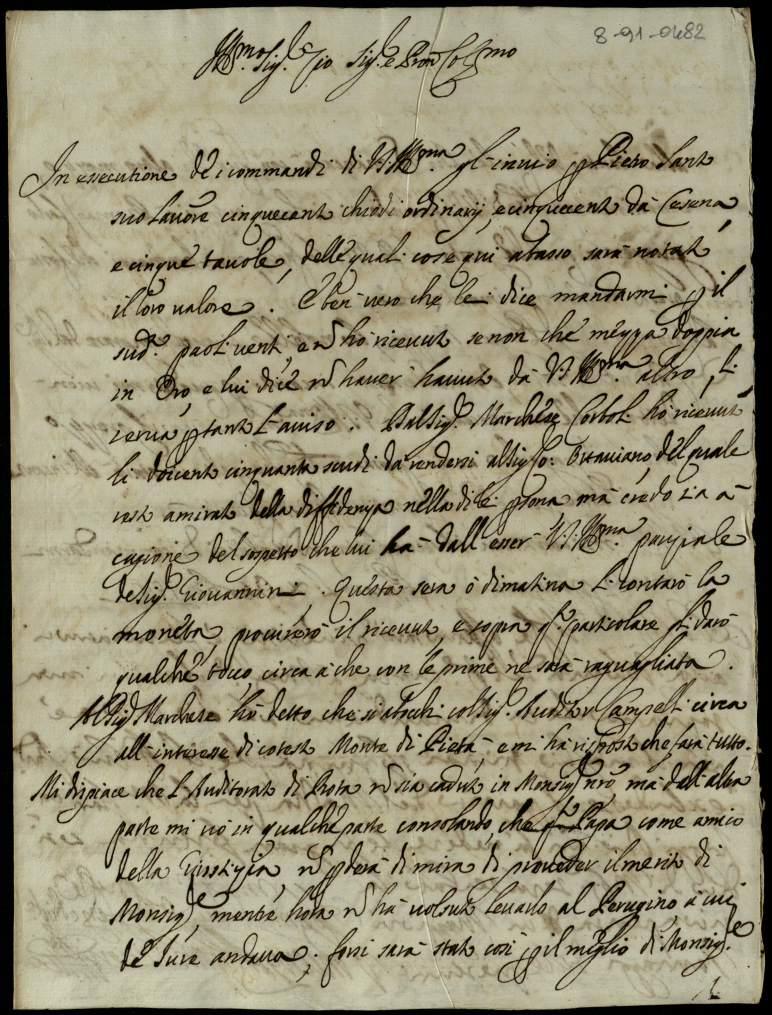 8-91-0482
Ill.mo Sig.e Zio Sig.e e Pron Col.mo
In essecutione de i commandi di V.S. Ill.ma gl' invio p Pietro Sant
suo lavore cinquecent chiodi ordinarij, e cinquecent da Cesena
e cinque tavole, delle quali cose qui abasso sarà notat
il loro valore. È ben vero che lei dice mandarmi p il
sud.o paoli venti, e nō hò ricevut se non che mezza doppia
in Oro, e lui dice nō haver havut da V.S. Ill.ma altro, li
serva p tant l'aviso. Dal Sig.r Marchese ho ricevut
li docent cinquanta scudi da rendersi al Sig.r Ottaviano, del quale
rest amirat della diffidenza nella di lei psona mà credo sia a
cagione del sospetto che lui hà dall'esser V.S. Ill.ma parziale
de Sig.r Giovannini. Questa sera ò dimatina li contarò la
moneta, procurerò il ricevut, e sopra qst particolare gli darò
qualche tocco circa à che con le prime ne sarà raguagliata.
Al Sig.r Marchese hò detto che si abochi col Sig.r Auditor Campelli circa
all'interesse di cotest Monte di Pietà e mi hà rispost che farà tutto.
Mi dispiace che l'Auditorat di Rota nō sia cadut in Monsig.r nrō, mà dall'altra
parte mi vò in qualche parte consolando, che Papa come amico
della Giustizia, nō pderà di mira di proveder il merit di
Monsig.re, mentre hora nō hà volsut levarlo al Perugino à cui
de Jure andava; forsi sarà stat così p il meglio di Monsig.re